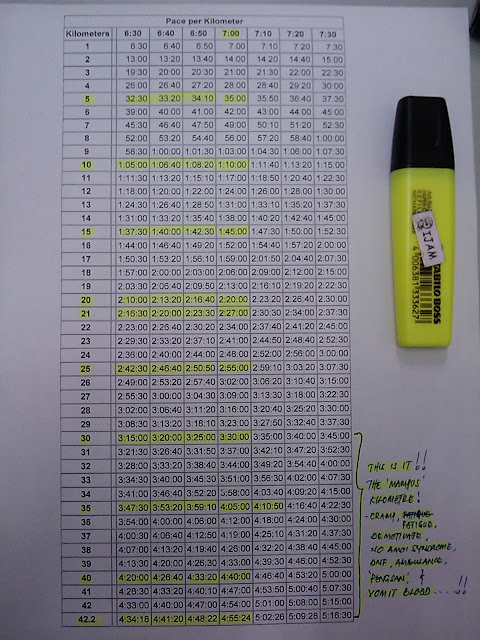 Pace per Kilometer
Kilometers 6:30 6:40 6:50 7:00 7:10 7:20 7:30
1 6:30 6:40 6:50 7:00 7:10 7:20 7:30
2 13:00 13:20 13:40 14:00 14:20 14:40 15:00
3 19:30 20:00 20:30 21:00 21:30 22:00 22:30
4 26:00 26:40 27:20 28:00 28:40 29:20 30:00
5 32:30 33:20 34:10 35:00 35:50 36:40 37:30
6 39:00 40:00 41:00 42:00 43:00 44:00 45:00
7 45:30 46:40 47:50 49:00 50:10 51:20 52:30
8 52:00 53:20 54:40 56:00 57:20 58:40 1:00:00
9 58:30 1:00:00 1:01:30 1:03:00 1:04:30 1:06:00 1:07:30
10 1:05:00 1:06:40 1:08:20 1:10:00 1:11:40 1:13:20 1:15:00
11 1:11:30 1:13:20 1:15:10 1:17:00 1:18:50 1:20:40 1:22:30
12 1:18:00 1:20:00 1:22:00 1:24:00 1:26:00 1:28:00 1:30:00
13 1:24:30 1:26:40 1:28:50 1:31:00 1:33:10 1:35:20 1:37:30
14 1:31:00 1:33:20 1:35:40 1:38:00 1:40:20 1:42:40 1:45:00
15 1:37:30 1:40:00 1:42:30 1:45:00 1:47:30 1:50:00 1:52:30
16 1:44:00 1:46:40 1:49:20 1:52:00 1:54:40 1:57:20 2:00:00
17 1:50:30 1:53:20 1:56:10 1:59:00 2:01:50 2:04:40 2:07:30
18 1:57:00 2:00:00 2:03:00 2:06:00 2:09:00 2:12:00 2:15:00
19 2:03:30 2:06:40 2:09:50 2:13:00 2:16:10 2:19:20 2:22:30
20 2:10:00 2:13:20 2:16:40 2:20:00 2:23:20 2:26:40 2:30:00
21 2:16:30 2:20:00 2:23:30 2:27:00 2:30:30 2:34:00 2:37:30
22 2:23:00 2:26:40 2:30:20 2:34:00 2:37:40 2:41:20 2:45:00
23 2:29:30 2:33:20 2:37:10 2:41:00 2:44:50 2:48:40 2:52:30
24 2:36:00 2:40:00 2:44:00 2:48:00 2:52:00 2:56:00 3:00:00
25 2:42:30 2:46:40 2:50:50 2:55:00 2:59:10 3:03:20 3:07:30
26 2:49:00 2:53:20 2:57:40 3:02:00 3:06:20 3:10:40 3:15:00
27 2:55:30 3:00:00 3:04:30 3:09:00 3:13:30 3:18:00 3:22:30
28 3:02:00 3:06:40 3:11:20 3:16:00 3:20:40 3:25:20 3:30:00
29 3:08:30 3:13:20 3:18:10 3:23:00 3:27:50 3:32:40 3:37:30
30 3:15:00 3:20:00 3:25:00 3:30:00 3:35:00 3:40:00 3:45:00
31 3:21:30 3:26:40 3:31:50 3:37:00 3:42:10 3:47:20 3:52:30
32 3:28:00 3:33:20 3:38:40 3:44:00 3:49:20 3:54:40 4:00:00
33 3:34:30 3:40:00 3:45:30 3:51:00 3:56:30 4:02:00 4:07:30
34 3:41:00 3:46:40 3:52:20 3:58:00 4:03:40 4:09:20 4:15:00
35 3:47:30 3:53:20 3:59:10 4:05:00 4:10:50 4:16:40 4:22:30
36 3:54:00 4:00:00 4:06:00 4:12:00 4:18:00 4:24:00 4:30:00
37 4:00:30 4:06:40 4:12:50 4:19:00 4:25:10 4:31:20 4:37:30
38 4:07:00 4:13:20 4:19:40 4:26:00 4:32:20 4:38:40 4:45:00
39 4:13:30 4:20:00 4:26:30 4:33:00 4:39:30 4:46:00 4:52:30
40 4:20:00 4:26:40 4:33:20 4:40:00 4:46:40 4:53:20 5:00:00
41 4:26:30 4:33:20 4:40:10 4:47:00 4:53:50 5:00:40 5:07:30
42 4:33:00 4:40:00 4:47:00 4:54:00 5:01:00 5:08:00 5:15:00
42.2 4:34:18 4:41:20 4:48:22 4:55:24 5:02:26 5:09:28 5:16:30
THIS IS IT!!
THE "MAMPUS"
KILOMETRE!
- CRAMP,
FATIGUE,
DEMOTIVATE,
NO AMOI SYNDROME,
DNF, AMBULANCE,
"PENGSAN", &
VOMIT BLOOD.....!!
IJAM
STABILO BOSS
4 006381 333627